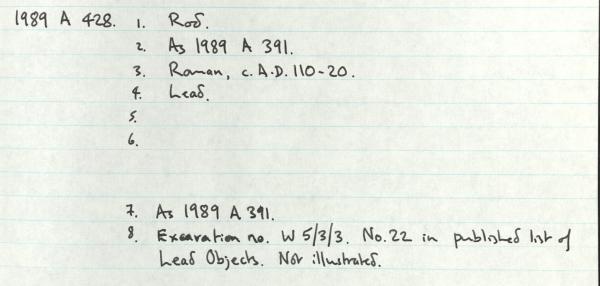 1989 A 428. 1. Rod.
2. As 1989 A 391.
3. Roman, c. A.D. 110-20.
4. Lead.
5.
6.
7. As 1989 A 391.
8. Excavation no. W 5/3/3. No. 22 in published list of
Lead Objects. Not illustrated.